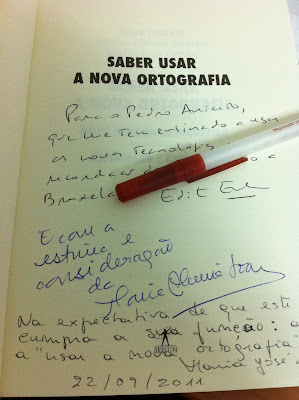 SABER USAR
A NOVA ORTOGRAFIA
Para o Pedro Aniceto,
que me tem ensinado a usar
as novas tecnologias
recordar
Bruxelas Edit
E com a
estima e
consideração
da
Na expectativa de que este
cumpra a sua função: a
a "usar a nova ortografia"
Maria José
22/09/2011